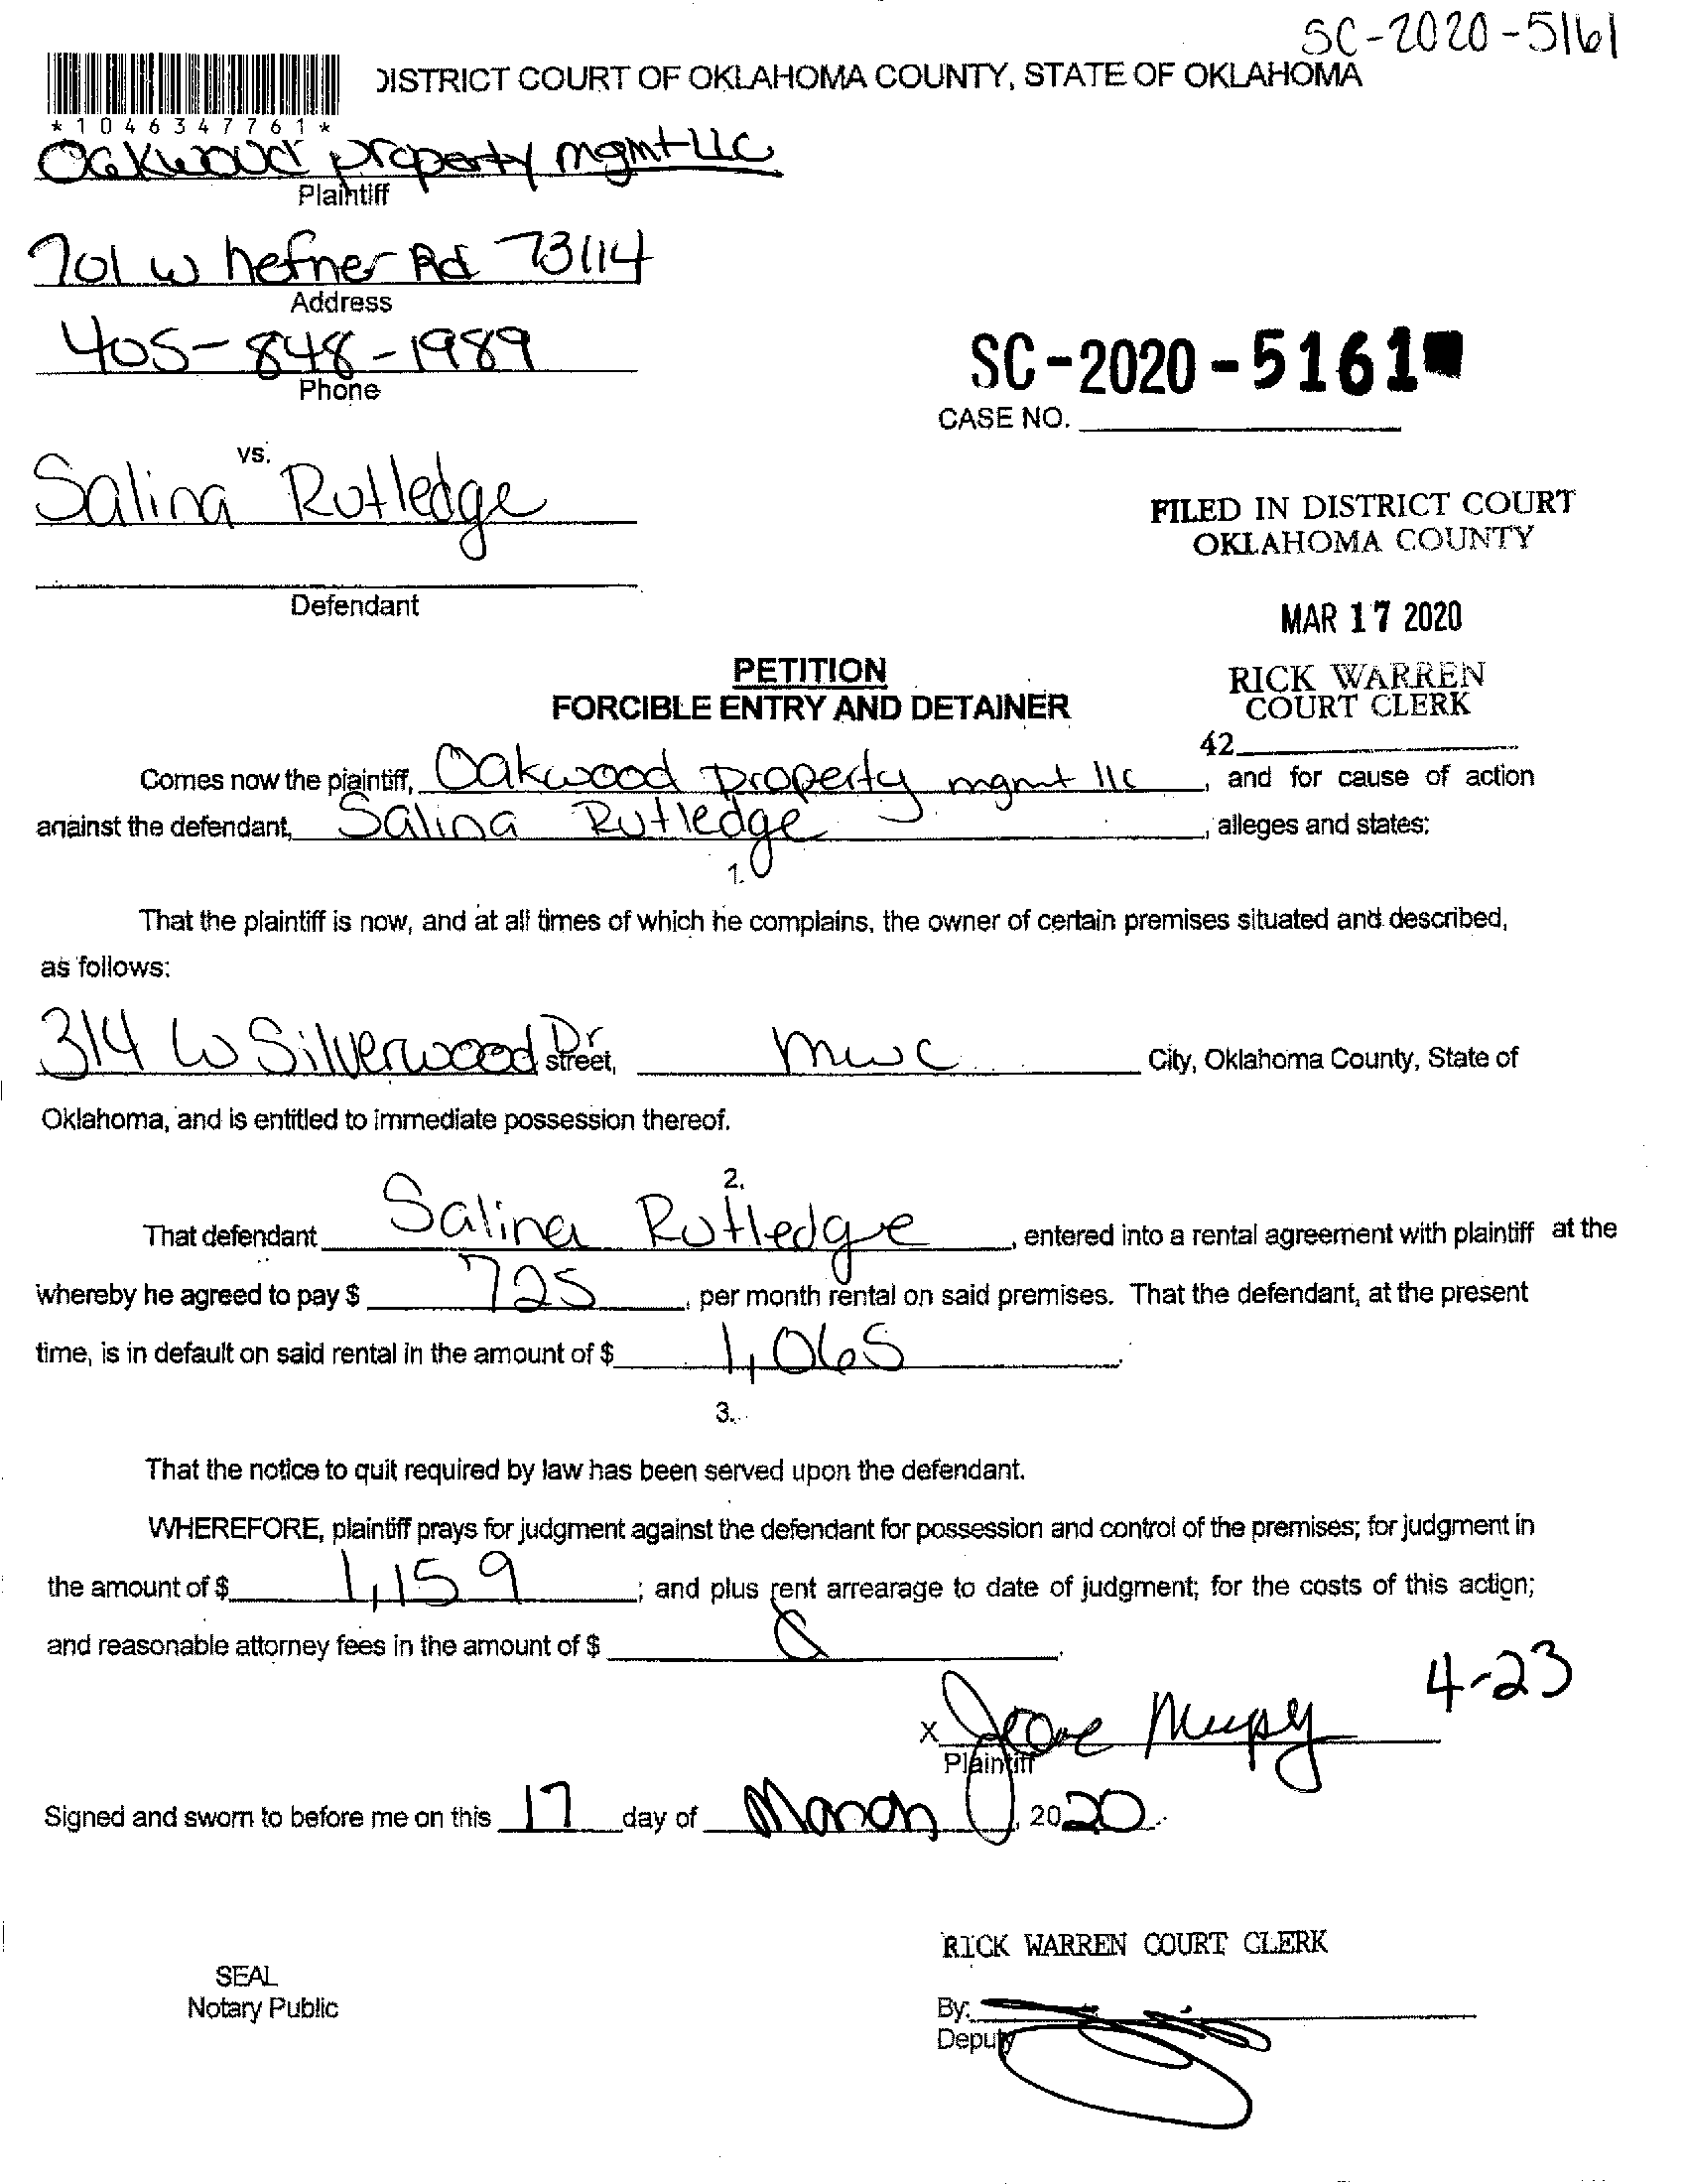 SC-2020-5161
DISTRICT COURT OF OKLAHOMA COUNTY, STATE OF OKLAHOMA
*1046347761*
Oakwood property mgmt LLC
Plaintiff
701 W hefner Rd 73114
Address
405-848-1989
Phone
SC-2020-5161
CASE NO.
vs.
Salina Rutledge
FILED IN DISTRICT COURT
OKLAHOMA COUNTY
Defendant
MAR 17 2020
PETITION
FORCIBLE ENTRY AND DETAINER
RICK WARREN
COURT CLERK
42
Comes now the plaintiff, Oakwood property mgmt llc, and for cause of action
against the defendant, Salina Rutledge, alleges and states:
1.
That the plaintiff is now, and at all times of which he complains, the owner of certain premises situated and described,
as follows:
314 W Silverwood Dr street, mwc City, Oklahoma County, State of
Oklahoma, and is entitled to immediate possession thereof.
2.
That defendant Salina Rutledge, entered into a rental agreement with plaintiff at the
whereby he agreed to pay $ 725, per month rental on said premises. That the defendant, at the present
time, is in default on said rental in the amount of $ 1,065.
3.
That the notice to quit required by law has been served upon the defendant.
WHEREFORE, plaintiff prays for judgment against the defendant for possession and control of the premises; for judgment in
the amount of $ 1,159; and plus rent arrearage to date of judgment; for the costs of this action;
and reasonable attorney fees in the amount of $
4-23
X
Plaintiff
Signed and sworn to before me on this 17 day of March, 2020.
RICK WARREN COURT CLERK
SEAL
Notary Public
By:
Deputy